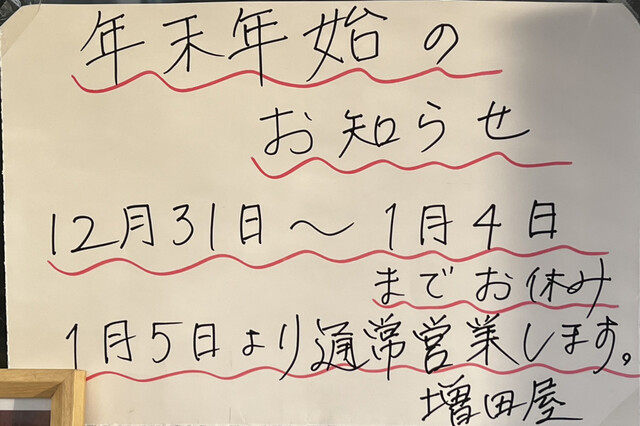 年末年始の
お知らせ
12月31日～1月4日
までお休み
1月5日より通常営業します。
増田屋